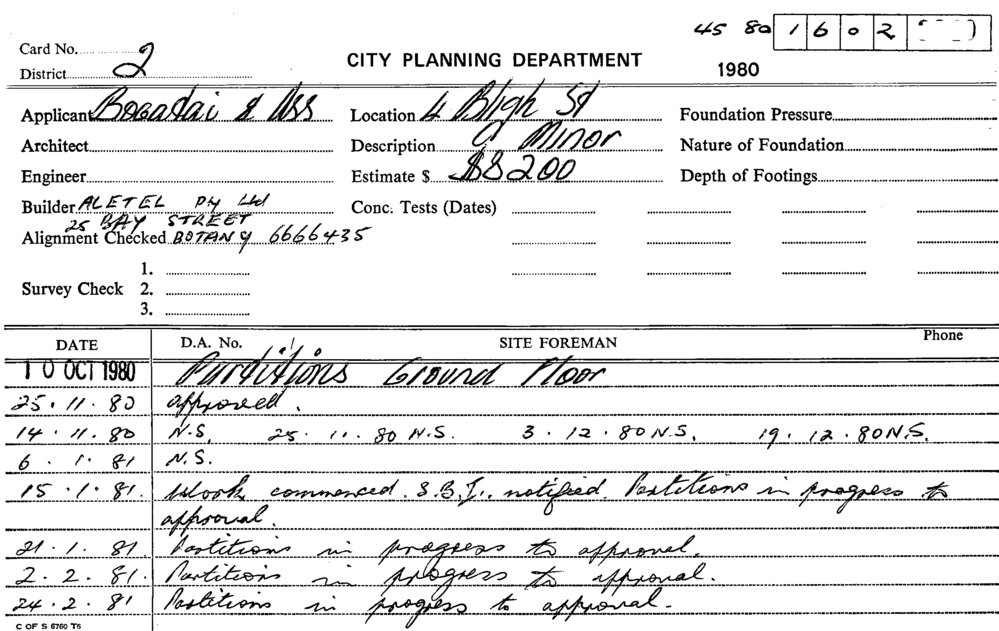 45 80 1 6 0 2
Card No. 2
District
CITY PLANNING DEPARTMENT
1980
Applicant & Ass
Location 4 Bligh St
Foundation Pressure
Architect
Description Minor
Nature of Foundation
Engineer
Estimate $ $8200
Depth of Footings
Builder ALETEL Pty Ltd
25 BAY STREET
Conc. Tests (Dates)
Alignment Checked BOTANY 6666435
1.
Survey Check 2.
3.
DATE D.A. No. SITE FOREMAN Phone
10 OCT 1980 Partitions Ground Floor
25.11.80 approved.
14.11.80 N.S. 25.11.80 N.S. 3.12.80 N.S. 19.12.80 N.S.
6.1.81 N.S.
15.1.81. Work commenced. S.B.I. notified. Partitions in progress to
approval.
21.1.81 Partitions in progress to approval.
2.2.81. Partitions in progress to approval.
24.2.81 Partitions in progress to approval.
C OF S 6760 T6